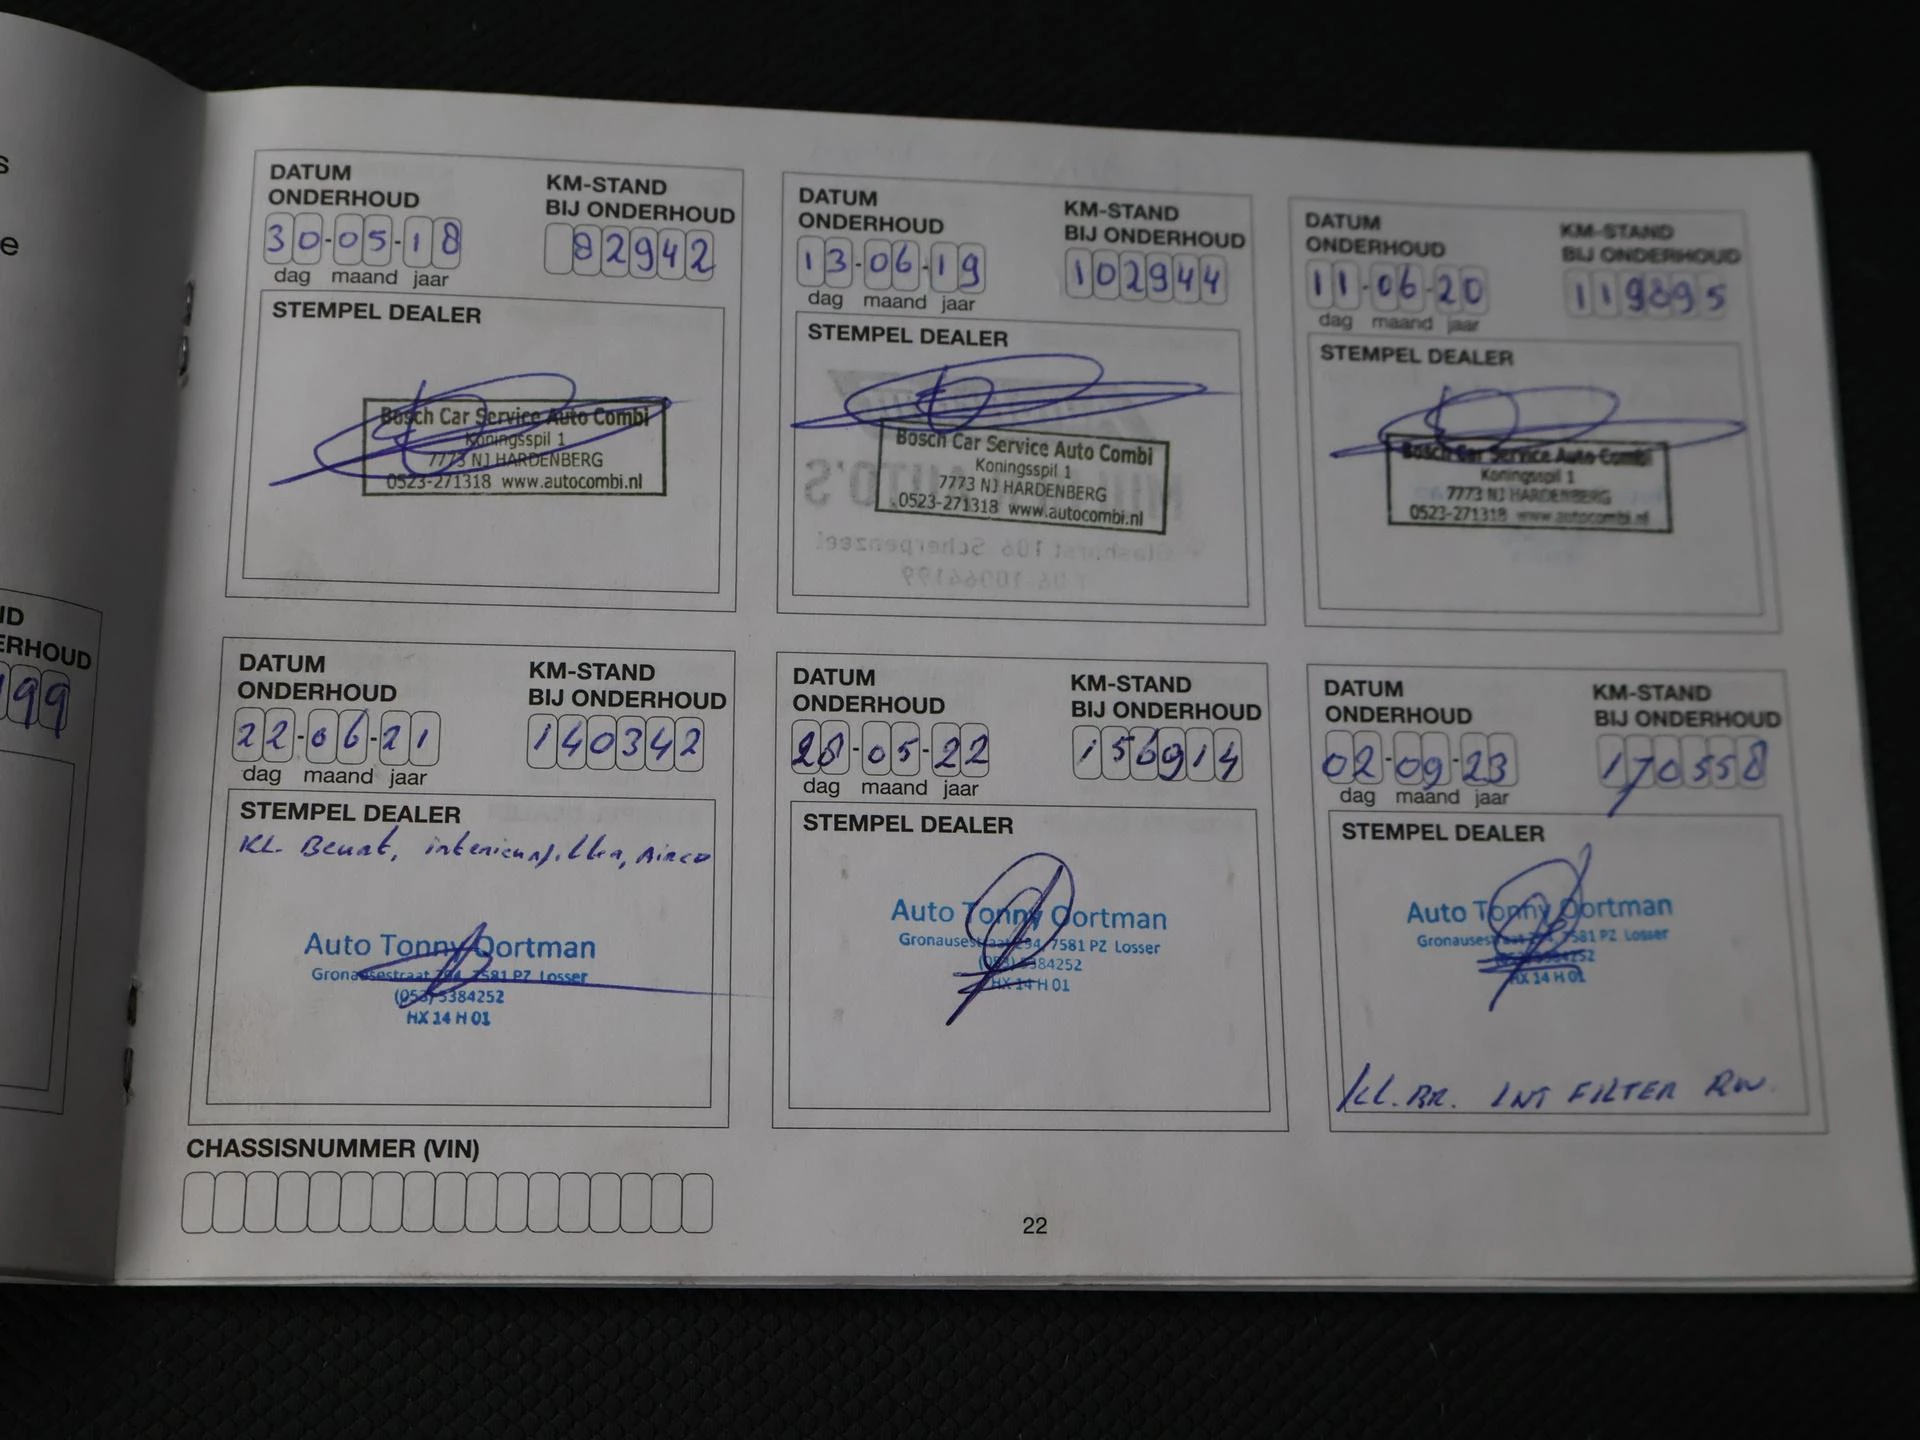 s
e
ND
ERHOUD
199
DATUM
ONDERHOUD
KM-STAND
BIJ ONDERHOUD
30-05-18
82942
dag maand jaar
STEMPEL DEALER
Bosch Car Service Auto Combi
Koningsspil 1
7773 NJ HARDENBERG
0523-271318 www.autocombi.nl
DATUM
ONDERHOUD
KM-STAND
BIJ ONDERHOUD
13-06-19
102944
dag maand jaar
STEMPEL DEALER
Bosch Car Service Auto Combi
Koningsspil 1
7773 NJ HARDENBERG
0523-271318 www.autocombi.nl
DATUM
ONDERHOUD
KM-STAND
BIJ ONDERHOUD
11-06-20
119895
dag maand jaar
STEMPEL DEALER
Bosch Car Service Auto Combi
Koningsspil 1
7773 NJ HARDENBERG
0523-271318 www.autocombi.nl
DATUM
ONDERHOUD
KM-STAND
BIJ ONDERHOUD
22-06-21
140342
dag maand jaar
STEMPEL DEALER
KL. Beurt, interieurfilter, Airco
Auto Tonny Oortman
Gronausestraat 294, 7581 PZ Losser
(053) 5384252
HX 14 H 01
DATUM
ONDERHOUD
KM-STAND
BIJ ONDERHOUD
28-05-22
156914
dag maand jaar
STEMPEL DEALER
Auto Tonny Oortman
Gronausestraat 294, 7581 PZ Losser
(053) 5384252
HX 14 H 01
DATUM
ONDERHOUD
KM-STAND
BIJ ONDERHOUD
02-09-23
170558
dag maand jaar
STEMPEL DEALER
Auto Tonny Oortman
Gronausestraat 294, 7581 PZ Losser
(053) 5384252
HX 14 H 01
KL. BR. INT FILTER RW.
CHASSISNUMMER (VIN)
22